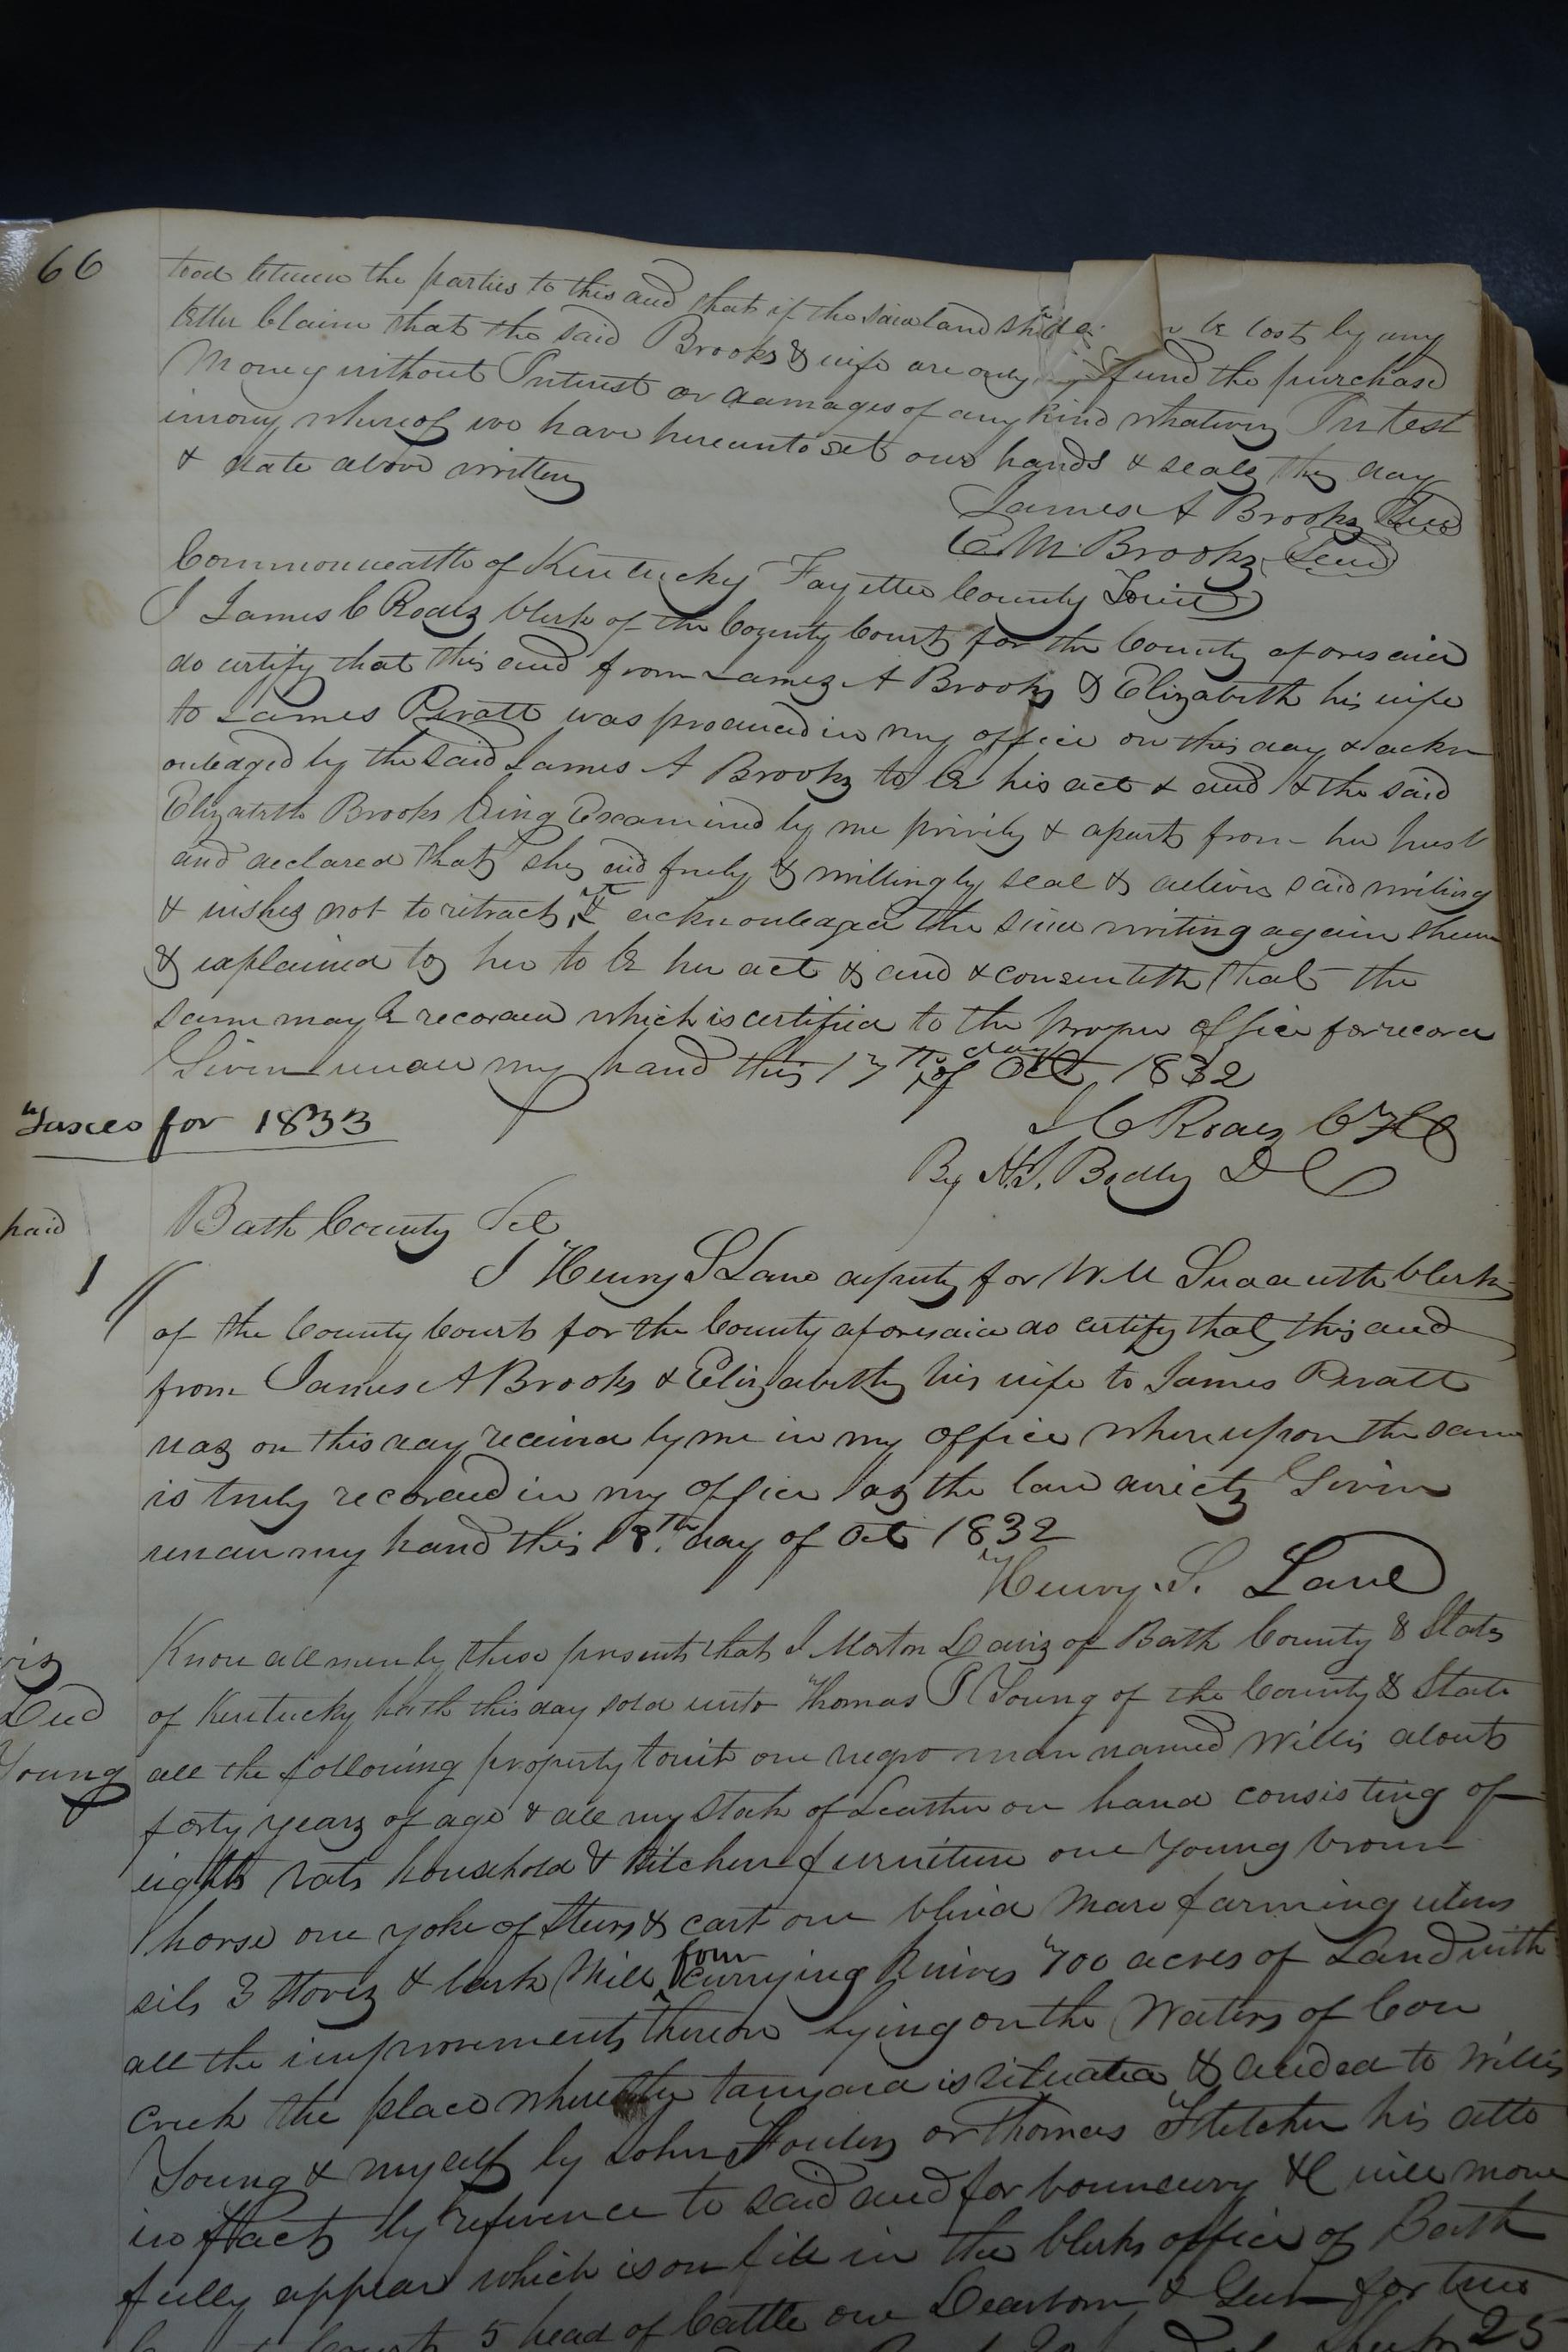 66
tood between the parties to this deed that if the said land should be lost by any
better Claim that the said Brooks & wife are only refund the purchase
Money without Interest or damages of any kind whatever In test
imony whereof we have hereunto set our hands & seals the day
& date above written
James A Brooks Seal
E M Brooks Seal
Commonwealth of Kentucky Fayette County Towit
I James C Rodes Clerk of the County Court for the County aforesaid
do certify that this deed from James A Brooks & Elizabeth his wife
to James Peratt was produced in my office on this day & ackn
owledged by the said James A Brooks to be his act & deed & the said
Elizabeth Brooks being Examined by me privily & apart from her husb
and declared that she did freely & willingly seal & deliver said writing
& wishes not to retract it & acknowledged the said writing again shewn
& explained to her to be her act & deed & consenteth that the
same may be recorded which is certified to the proper office for record
Given under my hand this 17th day of Oct 1832
J C Rodes CFCC
By H. I. Bodley DC
Taxes for 1833
paid
1
Bath County Sct
I Henry S Lane deputy for W M Sudduth Clerk
of the County Court for the County aforesaid do certify that this deed
from James A Brooks & Elizabeth his wife to James Peratt
was on this day received by me in my office whereupon the same
is truly recorded in my office as the law directs Given
under my hand this 18th day of Oct 1832
Henry S. Lane
Know all men by these presents that I Morton Davis of Bath County & State
of Kentucky hath this day sold unto Thomas I Young of the County & State
all the following property towit one negro man named Willis about
forty years of age & all my stock of Leather on hand consisting of
eight vats household & kitchen furniture one young brown
horse one yoke of steers & cart one blind mare farming uten
sils 3 stoves & bark Mill four currying knives 700 acres of Land with
all the improvements thereon lying on the Waters of Cow
creek the place where the tanyard is situated & deeded to Willis
Young & myself by John Fowler or Thomas Fletcher his atto
in fact by reference to said deed for boundary &C will more
fully appear which is on file in the clerks office of Bath
5 head of Cattle one Dearborn & Gear for two
25
vis
Deed
Young